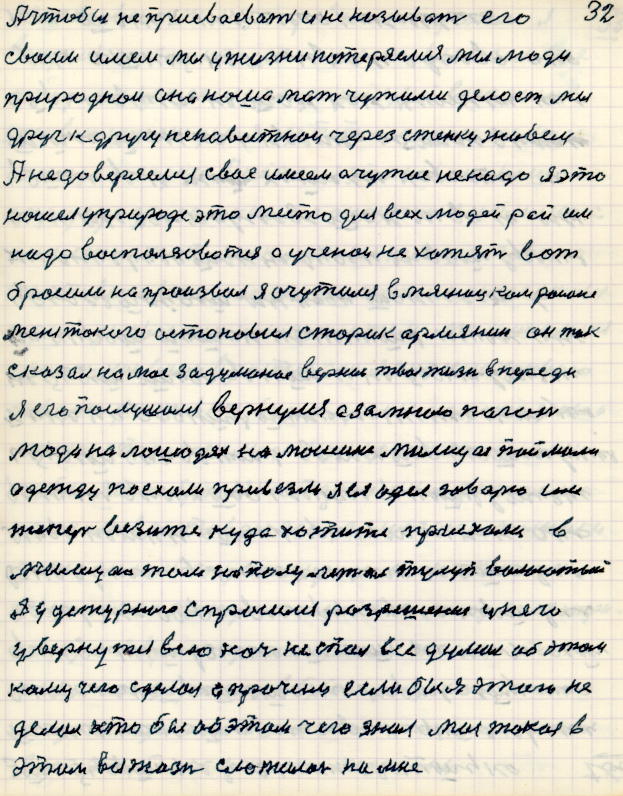 32
А чтобы не присваеват и не називат его
своим имем мы у жизни потерялися мы люди
природнои она наша мат чужими делост мы
друг к другу ненавитнои через стенку живем
Я недоверяемся свае имеем а чужое ненадо я это
нашел у природе это место для всех людей рай им
надо воспользоватся а ученои не хотят вот
бросили на произвал я очутился в мяснецком раионе
менытокого остоновил старик армянин он так
сказал на мое задуманое вернис твоя жизн впереди
я его послушался вернулся а замною пагон
люди на лошодях на машине милицая поймали
одежду поехали привезли я ея одел говарю им
тепер везите куда хотите приехали в
милицаю там на полу лежал тулуп валохотый
я у дежурного спросился разрешения у него
увернутся всю ноч не спал все думал об этом
каму чего сделал а прочим если бы я этого не
делал хто бы об этом чего знал моя такая в
этом вы жизн сложилас на мне